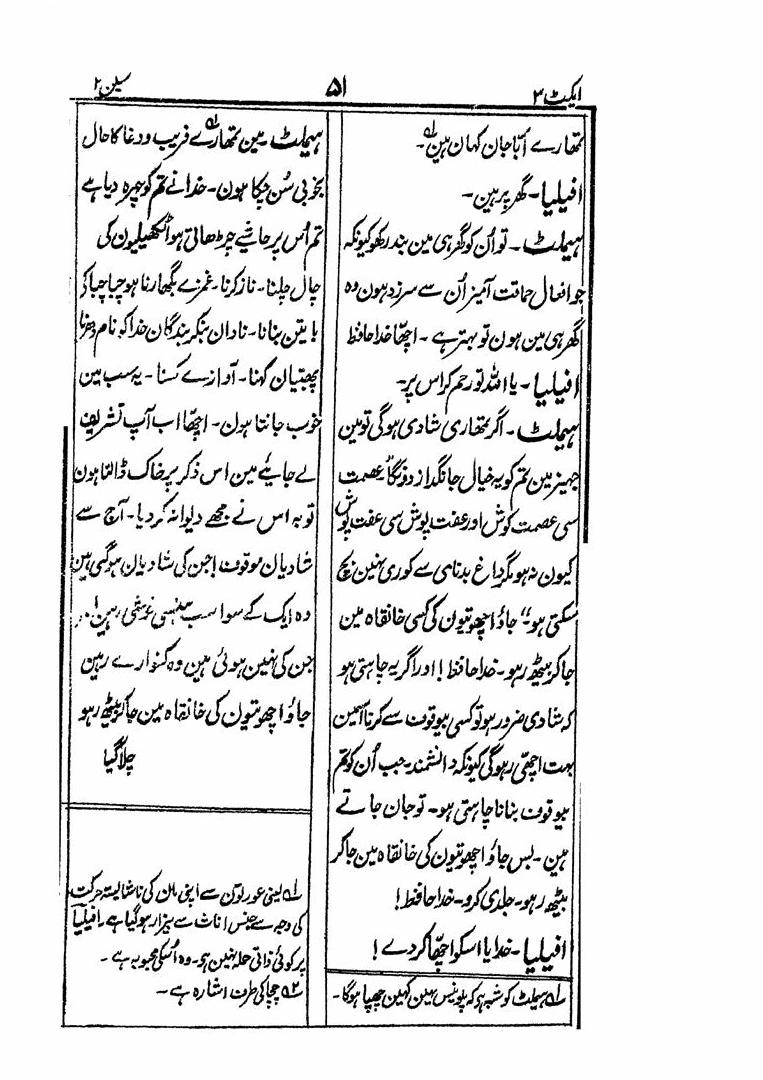 ایکٹ ۳
۵۱
سین ۲
تمھارے ابّا جان کہان ہین۱؎۔
افیلیا۔ گھر پر ہین۔
ہیملٹ۔ تو اُن کو گھر ہی مین بند رکھو کیونکہ
جو افعال حماقت آمیز اُن سے سرزد ہون وہ
گھر ہی مین ہون تو بہتر ہے۔ اچھّا خدا حافظ
افیلیا۔ یا اللہ تو رحم کر اس پر۔
ہیملٹ۔ اگر تمھاری شادی ہوگی تو مین
جہیز مین تم کو یہ خیال جانگداز دونگا عصمت
سی عصمت کوش اور عفت پوش سی عفت پوش
کیون نہ ہو مگر داغ بدنامی سے کوری نہین بچ
سکتی ہو" جاؤ اچھوتیون کی کسی خانقاہ مین
جا کر بیٹھ رہو۔ خدا حافظ! اور اگر یہ چاہتی ہو
کہ شادی ضرور ہو تو کسی بیوقوف سے کرنا اسمین
بہت اچھّی رہوگی کیونکہ دانشمند جب اُن کو تم
بیوقوف بنانا چاہتی ہو۔ تو جان جاتے
ہین۔ بس جاؤ اچھوتیون کی خانقاہ مین جا کر
بیٹھ رہو۔ جلدی کرو۔ خدا حافظ!
افیلیا۔ خدایا اسکو اچھّا کردے!
۱؎ ہیملٹ کو شبہ ہو کہ پولونیس یہین کہین چھپا ہوگا۔
ہیملٹ۔ مین تمھارے۱؎ فریب و دغا کا حال
بخوبی سُن چکا ہون۔ خدا نے تم کو چہرہ دیا ہے
تم اُس پر حاشیے چڑھاتی ہو اٹکھیلیون کی
چال چلنا۔ ناز کرنا۔ غمزے بگھارنا ہو چبا چبا کی
باتین بنانا۔ نادان بنکر بندگان خدا کو نام دھرنا
پھبتیان کہنا۔ آوازے کسنا۔ یہ سب مین
خوب جانتا ہون۔ اچھّا اب آپ تشریف
لے جایئے مین اس ذکر پر خاک ڈالتا ہون
توبہ اس نے مجھے دیوانہ کر دیا۔ آج سے
شادیان موقوف! جن کی شادیان ہوگئی ہین
وہ ایک کے سوا سب ہنسی خوشی رہین! اور
جن کی نہین ہوئی ہین وہ کنوارے رہین
جاؤ اچھوتیون کی خانقاہ مین جا کر بیٹھ رہو
چلا گیا
۱؎ یعنی عورتون سے اپنی مان کی ناشایستہ حرکت
کی وجہ سے جنس اناث سے بیزار ہوگیا ہے۔ افیلیا
پر کوئی ذاتی حملہ نہین ہو۔ وہ اُسکی محبوبہ ہے۔
۲؎ چچا کی طرف اشارہ ہے۔